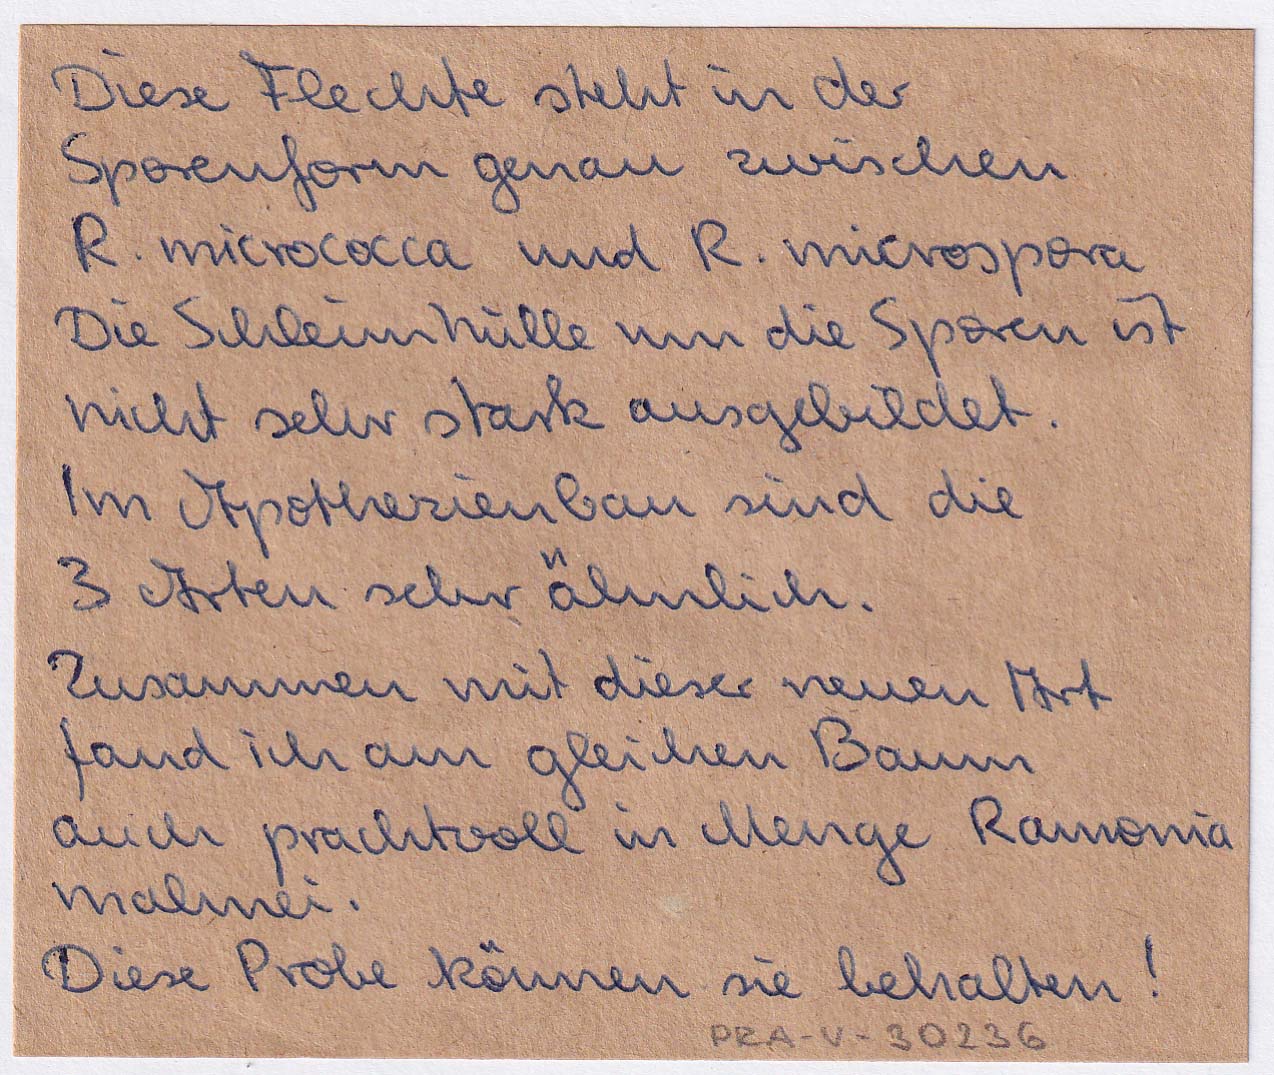 Diese Flechte steht in der
Sporenform genau zwischen
R. micrococca und R. microspora
Die Schleimhülle um die Sporen ist
nicht sehr stark ausgebildet.
Im Apothezienbau sind die
3 Arten sehr ähnlich.
Zusammen mit dieser neuen Art
fand ich am gleichen Baum
auch prachtvoll in Menge Ramonia
malmei.
Diese Probe können sie behalten!
PRA-V-30236